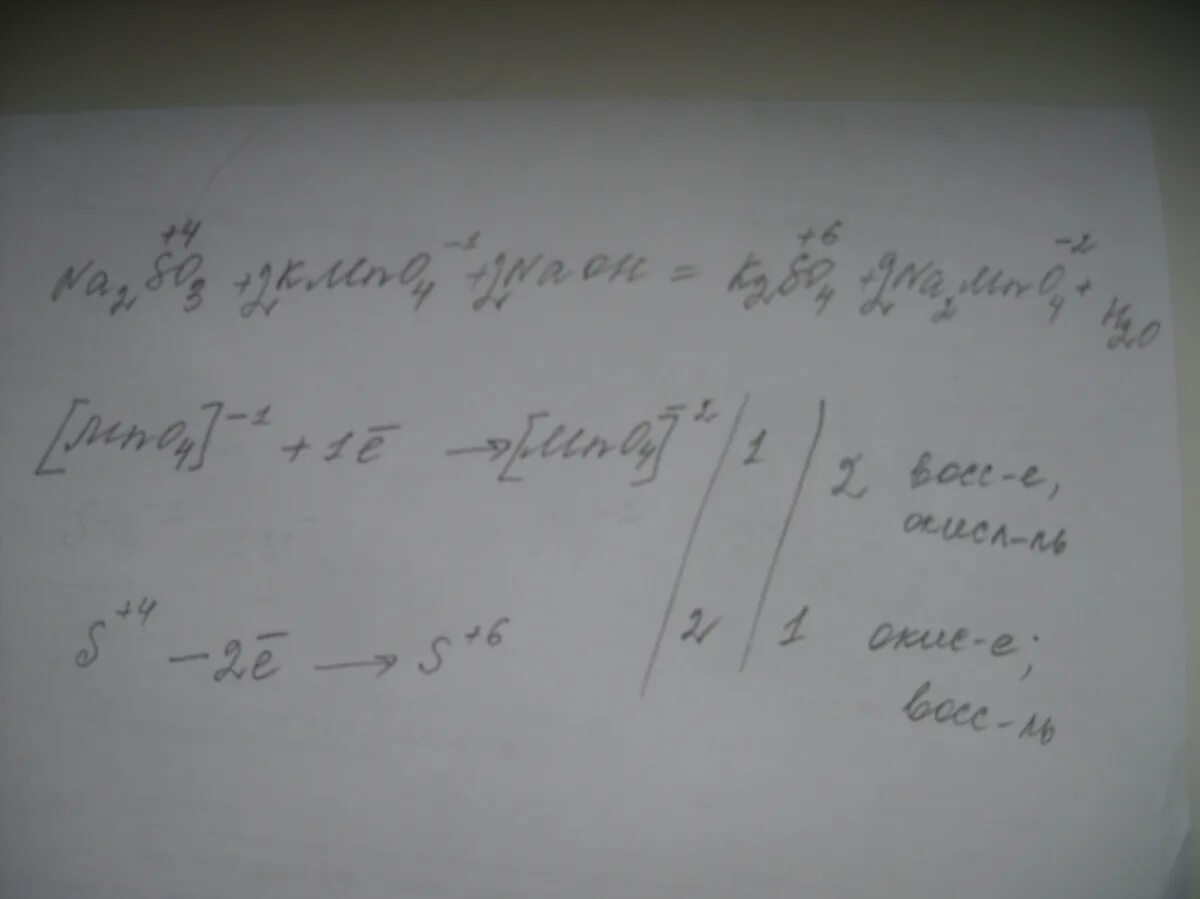 Na₂S⁺⁴O₃ + 2KMnO₄⁻¹ + 2NaOH = K₂S⁺⁶O₄ + 2Na₂MnO₄⁻² + H₂O
[MnO₄]⁻¹ + 1ē → [MnO₄]⁻² | 1 | 2 восс-е,
окисл-ль
S⁺⁴ – 2ē → S⁺⁶ | 2 | 1 окис-е;
восс-ль